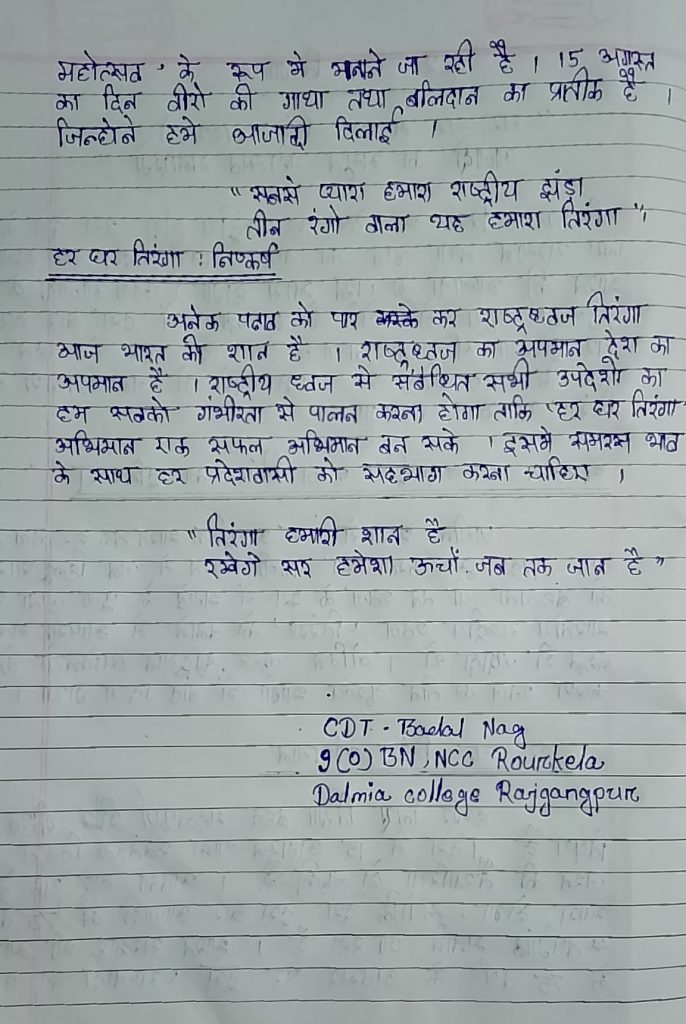 महोत्सव' के रूप मे मनाने जा रही है । 15 अगस्त
का दिन वीरो की गाथा तथा बलिदान का प्रतीक है ।
जिन्होने हमे आजादी दिलाई ।
"सबसे प्यारा हमारा राष्ट्रीय झंडा
तीन रंगो वाला यह हमारा तिरंगा"।
हर घर तिरंगा : निष्कर्ष
अनेक पडाव को पार कर राष्ट्रध्वज तिरंगा
आज भारत की शान है । राष्ट्रध्वज का अपमान देश का
अपमान है । राष्ट्रीय ध्वज से संबंधित सभी उपदेशो का
हम सबको गंभीरता से पालन करना होगा ताकि 'हर घर तिरंगा'
अभिमान एक सफल अभिमान बन सके । इसमे समरस भाव
के साथ हर प्रदेशवासी को सहभाग करना चाहिए ।
"तिरंगा हमारी शान है
रखेगे सर हमेशा ऊचाँ जब तक जान है"
CDT - Badal Nag
9(O) BN, NCC Rourkela
Dalmia college Rajgangpur